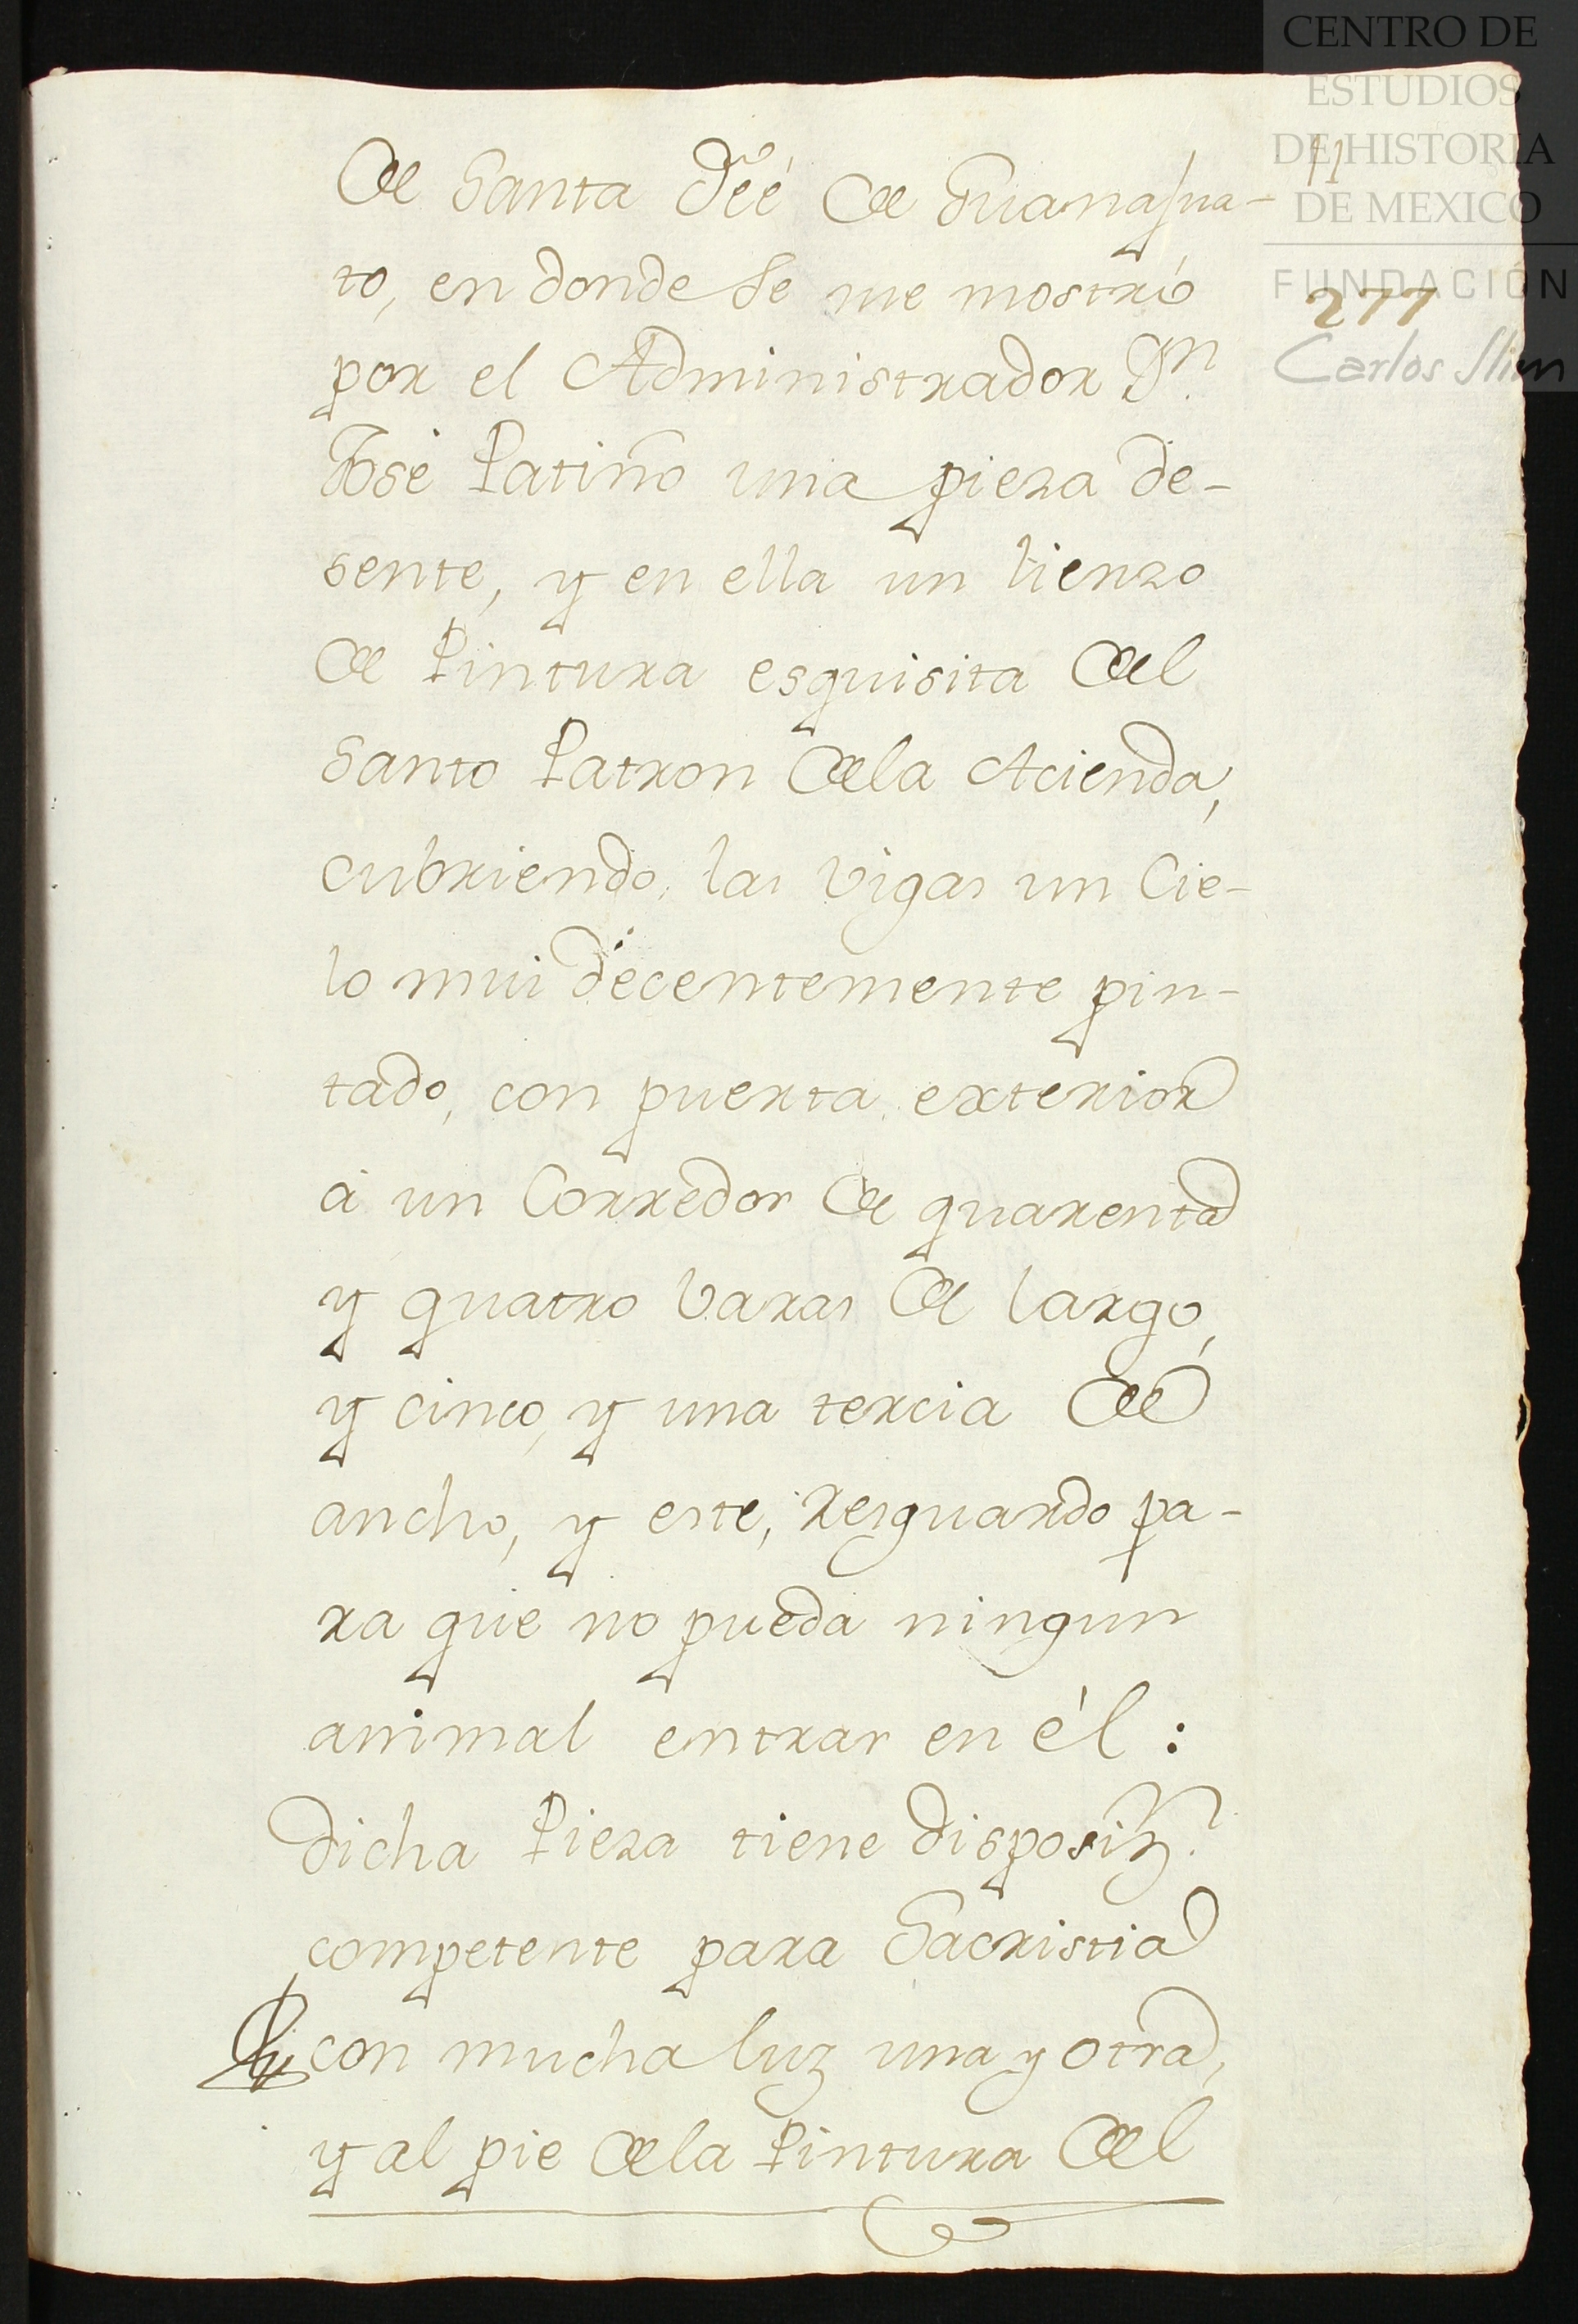 CENTRO DE
ESTUDIOS
DE HISTORIA
DE MEXICO
FUNDACIÓN
Carlos Slim
11
277
de Santa Feé de Guanajua-
to, en donde se me mostró
por el Administrador Dn.
José Patiño una pieza de-
sente, y en ella un lienzo
de Pintura esquisita del
Santo Patron dela Acienda,
cubriendo, las Vigas un Cie-
lo mui decentemente pin-
tado, con puerta exterior
á un Corredor de quarenta
y quatro baras de largo,
y cinco, y una tercia de
ancho, y este, resguardo pa-
ra que no pueda ningun
animal entrar en él:
dicha Pieza tiene disposizn.
competente para Sacristia
con mucha luz una y otra,
y al pie dela Pintura del